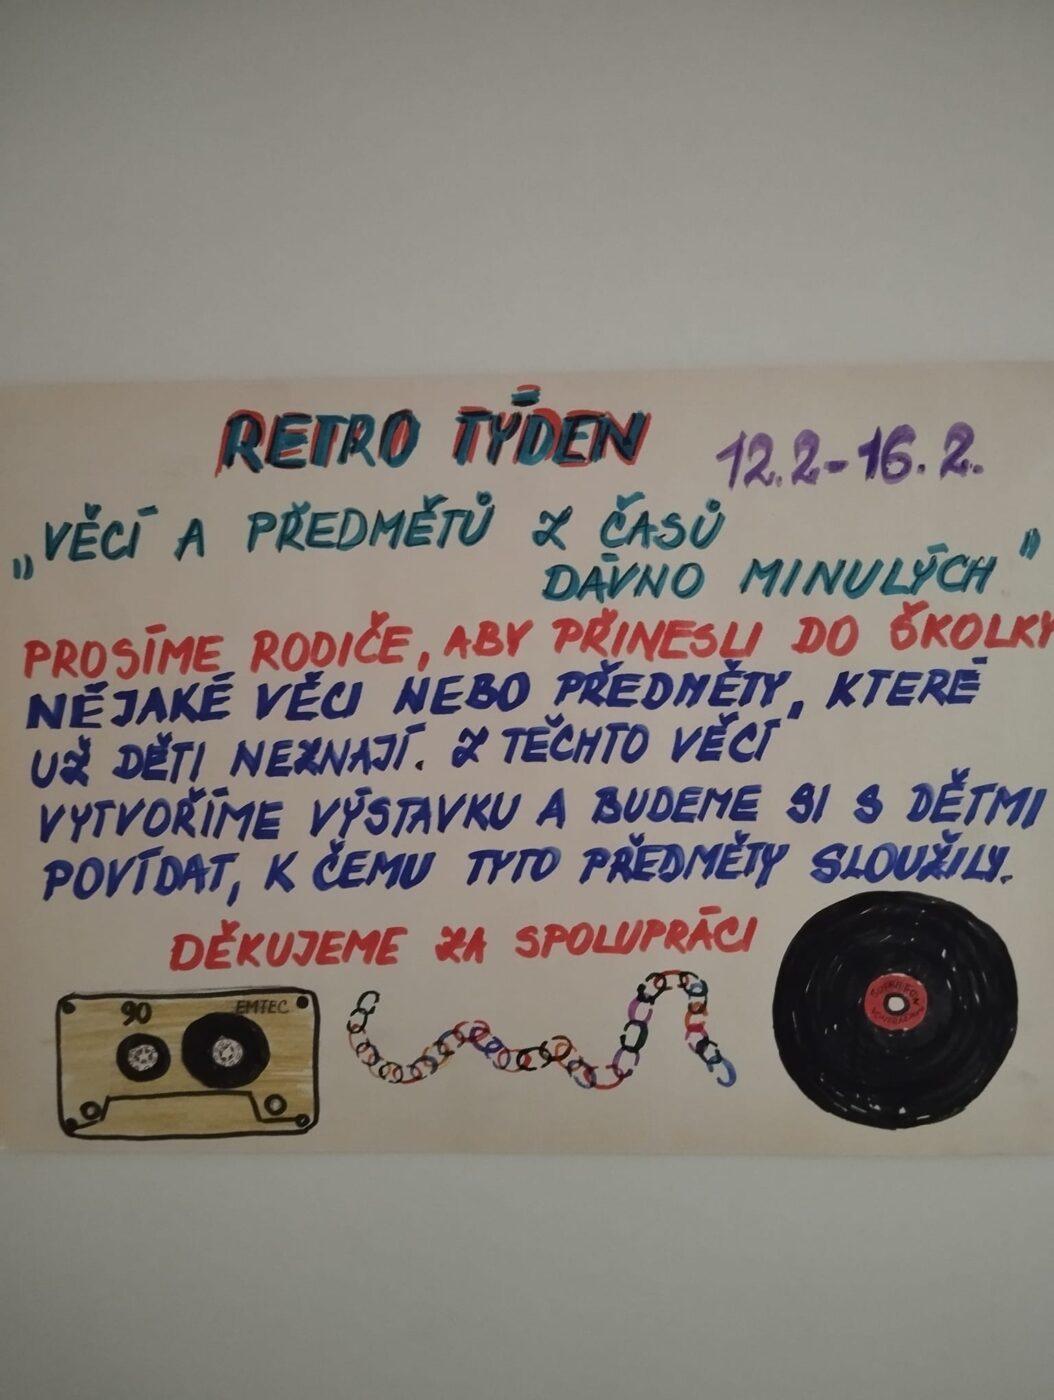 RETRO TÝDEN 12.2-16.2.
„VĚCÍ A PŘEDMĚTŮ Z ČASŮ
DÁVNO MINULÝCH"
PROSÍME RODIČE, ABY PŘINESLI DO ŠKOLKY
NĚJAKÉ VĚCI NEBO PŘEDMĚTY, KTERÉ
UŽ DĚTI NEZNAJÍ. Z TĚCHTO VĚCÍ
VYTVOŘÍME VÝSTAVKU A BUDEME SI S DĚTMI
POVÍDAT, K ČEMU TYTO PŘEDMĚTY SLOUŽILY.
DĚKUJEME ZA SPOLUPRÁCI
90 EMTEC